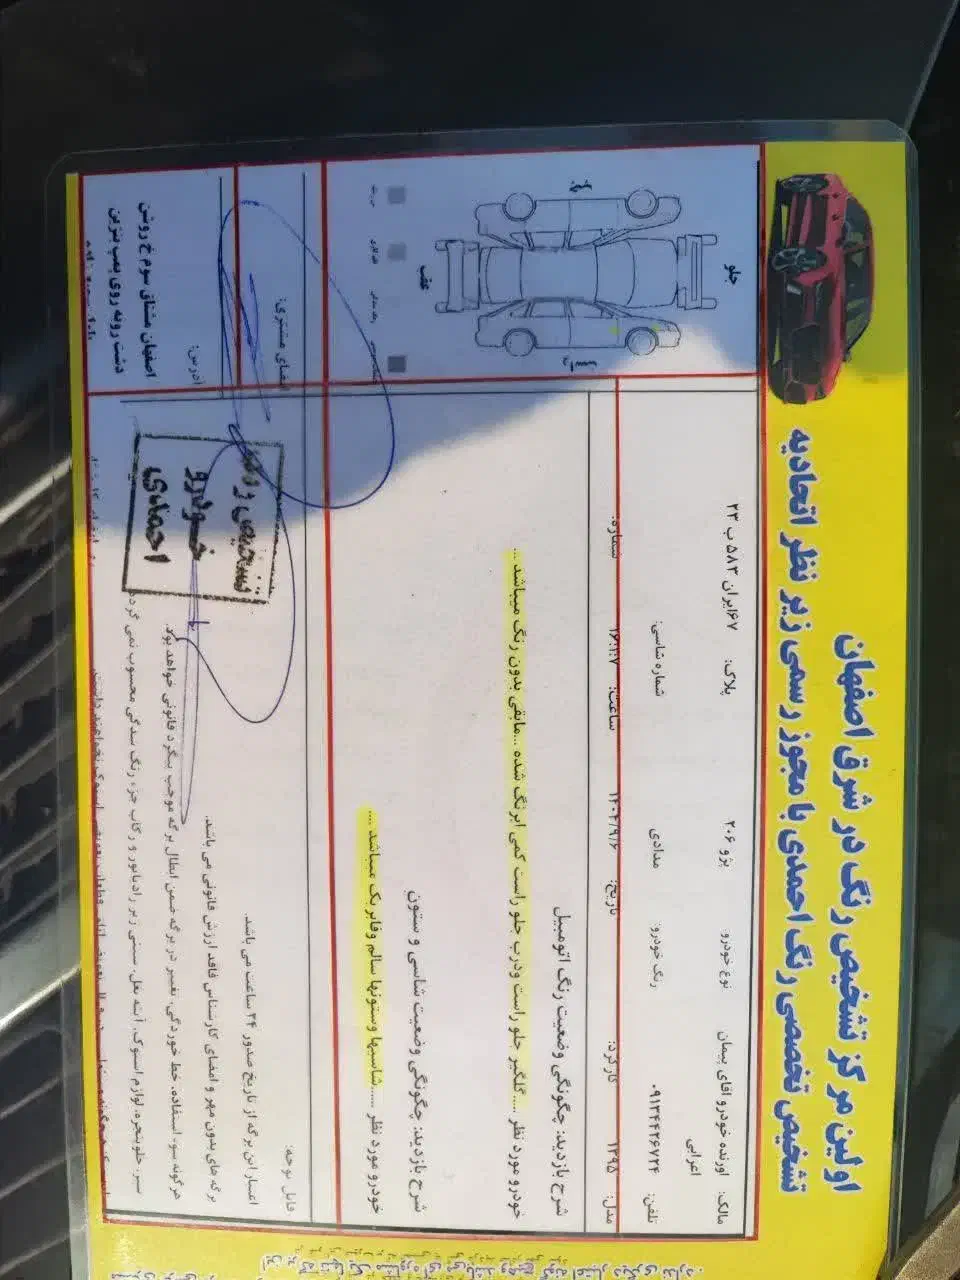 اولین مرکز تشخیص رنگ در شرق اصفهان
تشخیص تخصصی رنگ احمدی با مجوز رسمی زیر نظر اتحادیه
مالک: اورنده خودرو اقای پیمان اعرابی
نوع خودرو پژو ۲۰۶
پلاک: ۶۷ایران ۵۸۳ ب ۲۳
تلفن: ۰۹۱۳۴۴۲۶۷۲۴
رنگ خودرو: مدادی
شماره شاسی:
مدل: ۱۳۹۵
کارکرد:
تاریخ: ۱۴۰۲/۹/۱۶
ساعت: ۱۶:۱:۷
شماره:
شرح بازدید: چگونگی وضعیت رنگ اتومبیل
خودرو مورد نظر .....گلگیر جلو راست ودرب جلو راست کمی ابرنگ شده ...مابقی بدون رنگ میباشد ...
شرح بازدید: چگونگی وضعیت شاسی و ستون
خودرو مورد نظر ......شاسیها وستونها سالم وفابریک میباشد ....
جلو
عقب
قابل توجه:
اعتبار این برگه از تاریخ صدور ۲۴ ساعت می باشد.
برگه های بدون مهر و امضای کارشناس فاقد ارزش قانونی می باشد.
هرگونه سوء استفاده، خط خوردگی، تغییر در برگه ضمن ابطال برگه موجب پیگرد قانونی خواهد بود.
سپر، جلوپنجره، لوازم استوک، آینه بغل، سینی زیر رادیاتور و رکاب جزء رنگ شدگی محسوب نمی گردد
امضای مشتری:
تشخیص رنگ
خودرو
احمدی
آدرس:
اصفهان مشتاق سوم خ روشن
دشت روبه روی پمپ بنزین